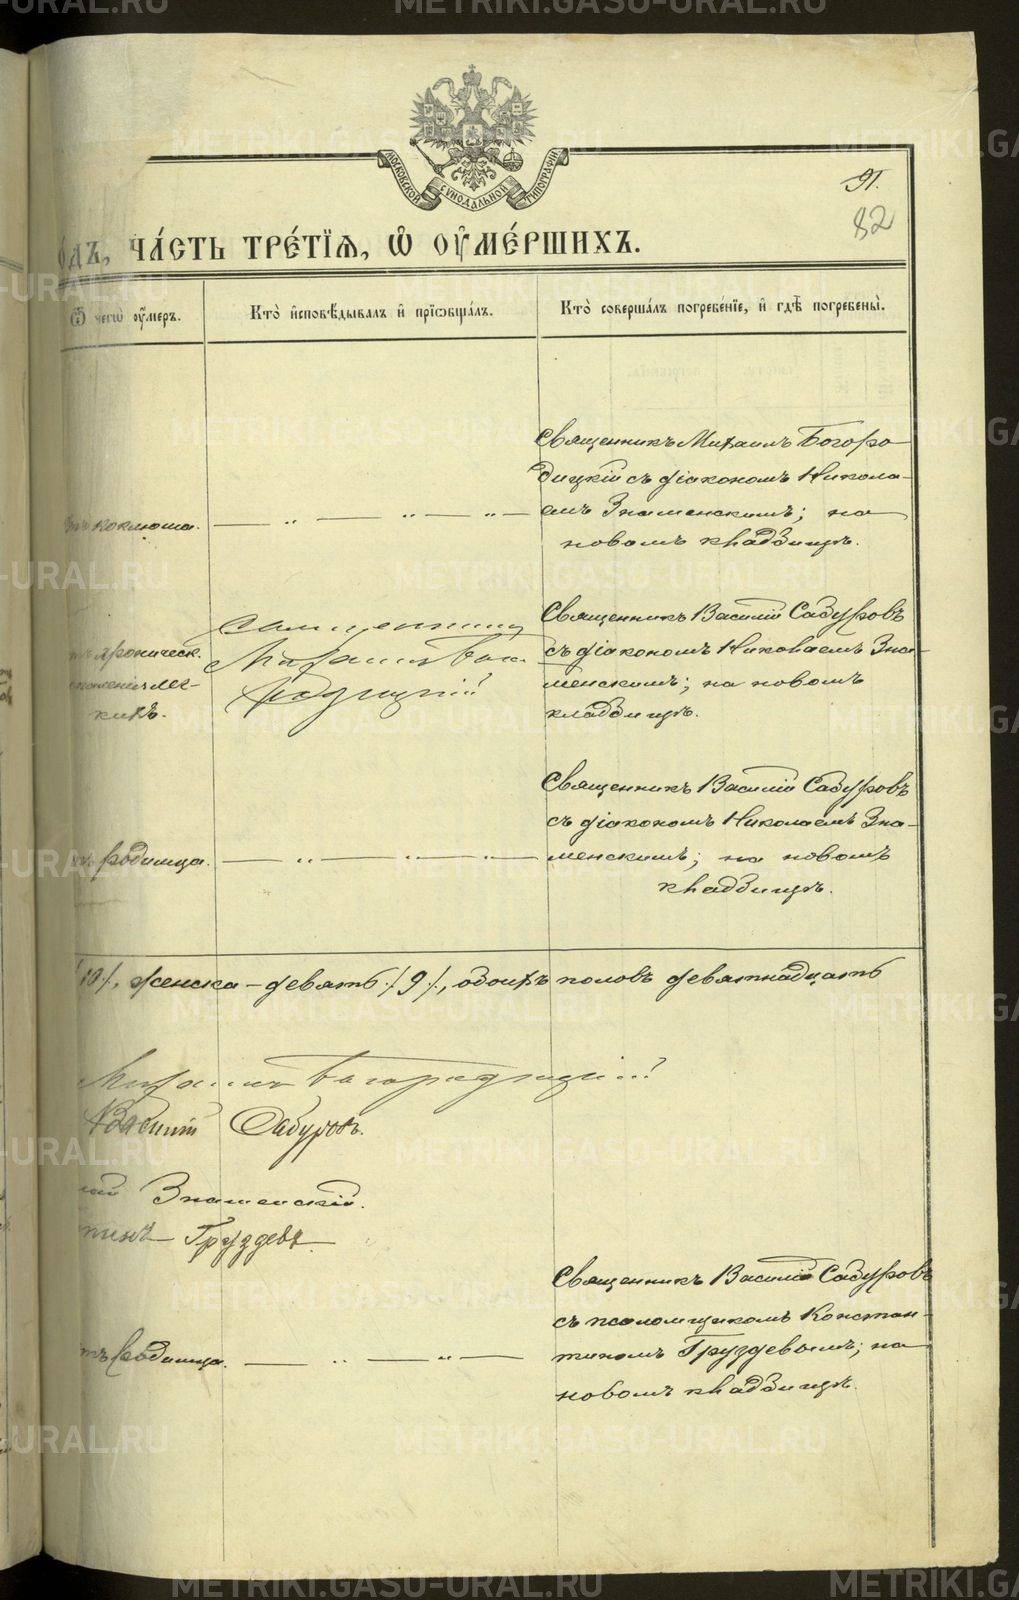 МОСКОВСКОЙ СѴНОДАЛЬНОЙ ТИПОГРАФІИ
91.
82
о́дъ, ЧА́СТЬ ТРЕ́ТІѦ, Ѡ ОУ҆МЕ́РШИХЪ.
Ѿ чегѡ̀ оу҆́меръ.
Кто̀ и҆сповѣ́дывалъ и҆ прїѡбща́лъ.
Кто̀ соверша́лъ погребе́нїе, и҆ гдѣ̀ погребены̀.
Священникъ Михаилъ Богоро-
дицкій съ діакономъ Никола-
отъ коклюша. — „ — „ — „ — емъ Знаменскимъ; на
новомъ кладбищѣ.
Священникъ
Михаилъ Бого-
родицкій
отъ хроническ.
воспаленія лег-
кихъ.
Священникъ Василій Сабуровъ
съ діакономъ Николаемъ Зна-
менскимъ; на новомъ
кладбищѣ.
Священникъ Василій Сабуровъ
съ діакономъ Николаемъ Зна-
отъ родимца. — „ — „ — „ — менскимъ; на новомъ
кладбищѣ.
/10/, женска – девять /9/, обоихъ половъ девятнадцать
Михаилъ Богородицкій
Василій Сабуровъ.
лай Знаменскій.
тинъ Груздевъ
Священникъ Василій Сабуровъ
съ псаломщикомъ Констан-
тъ родимца. — „ — „ — тиномъ Груздевымъ; на
новомъ кладбищѣ.
METRIKI.GASO-URAL.RU